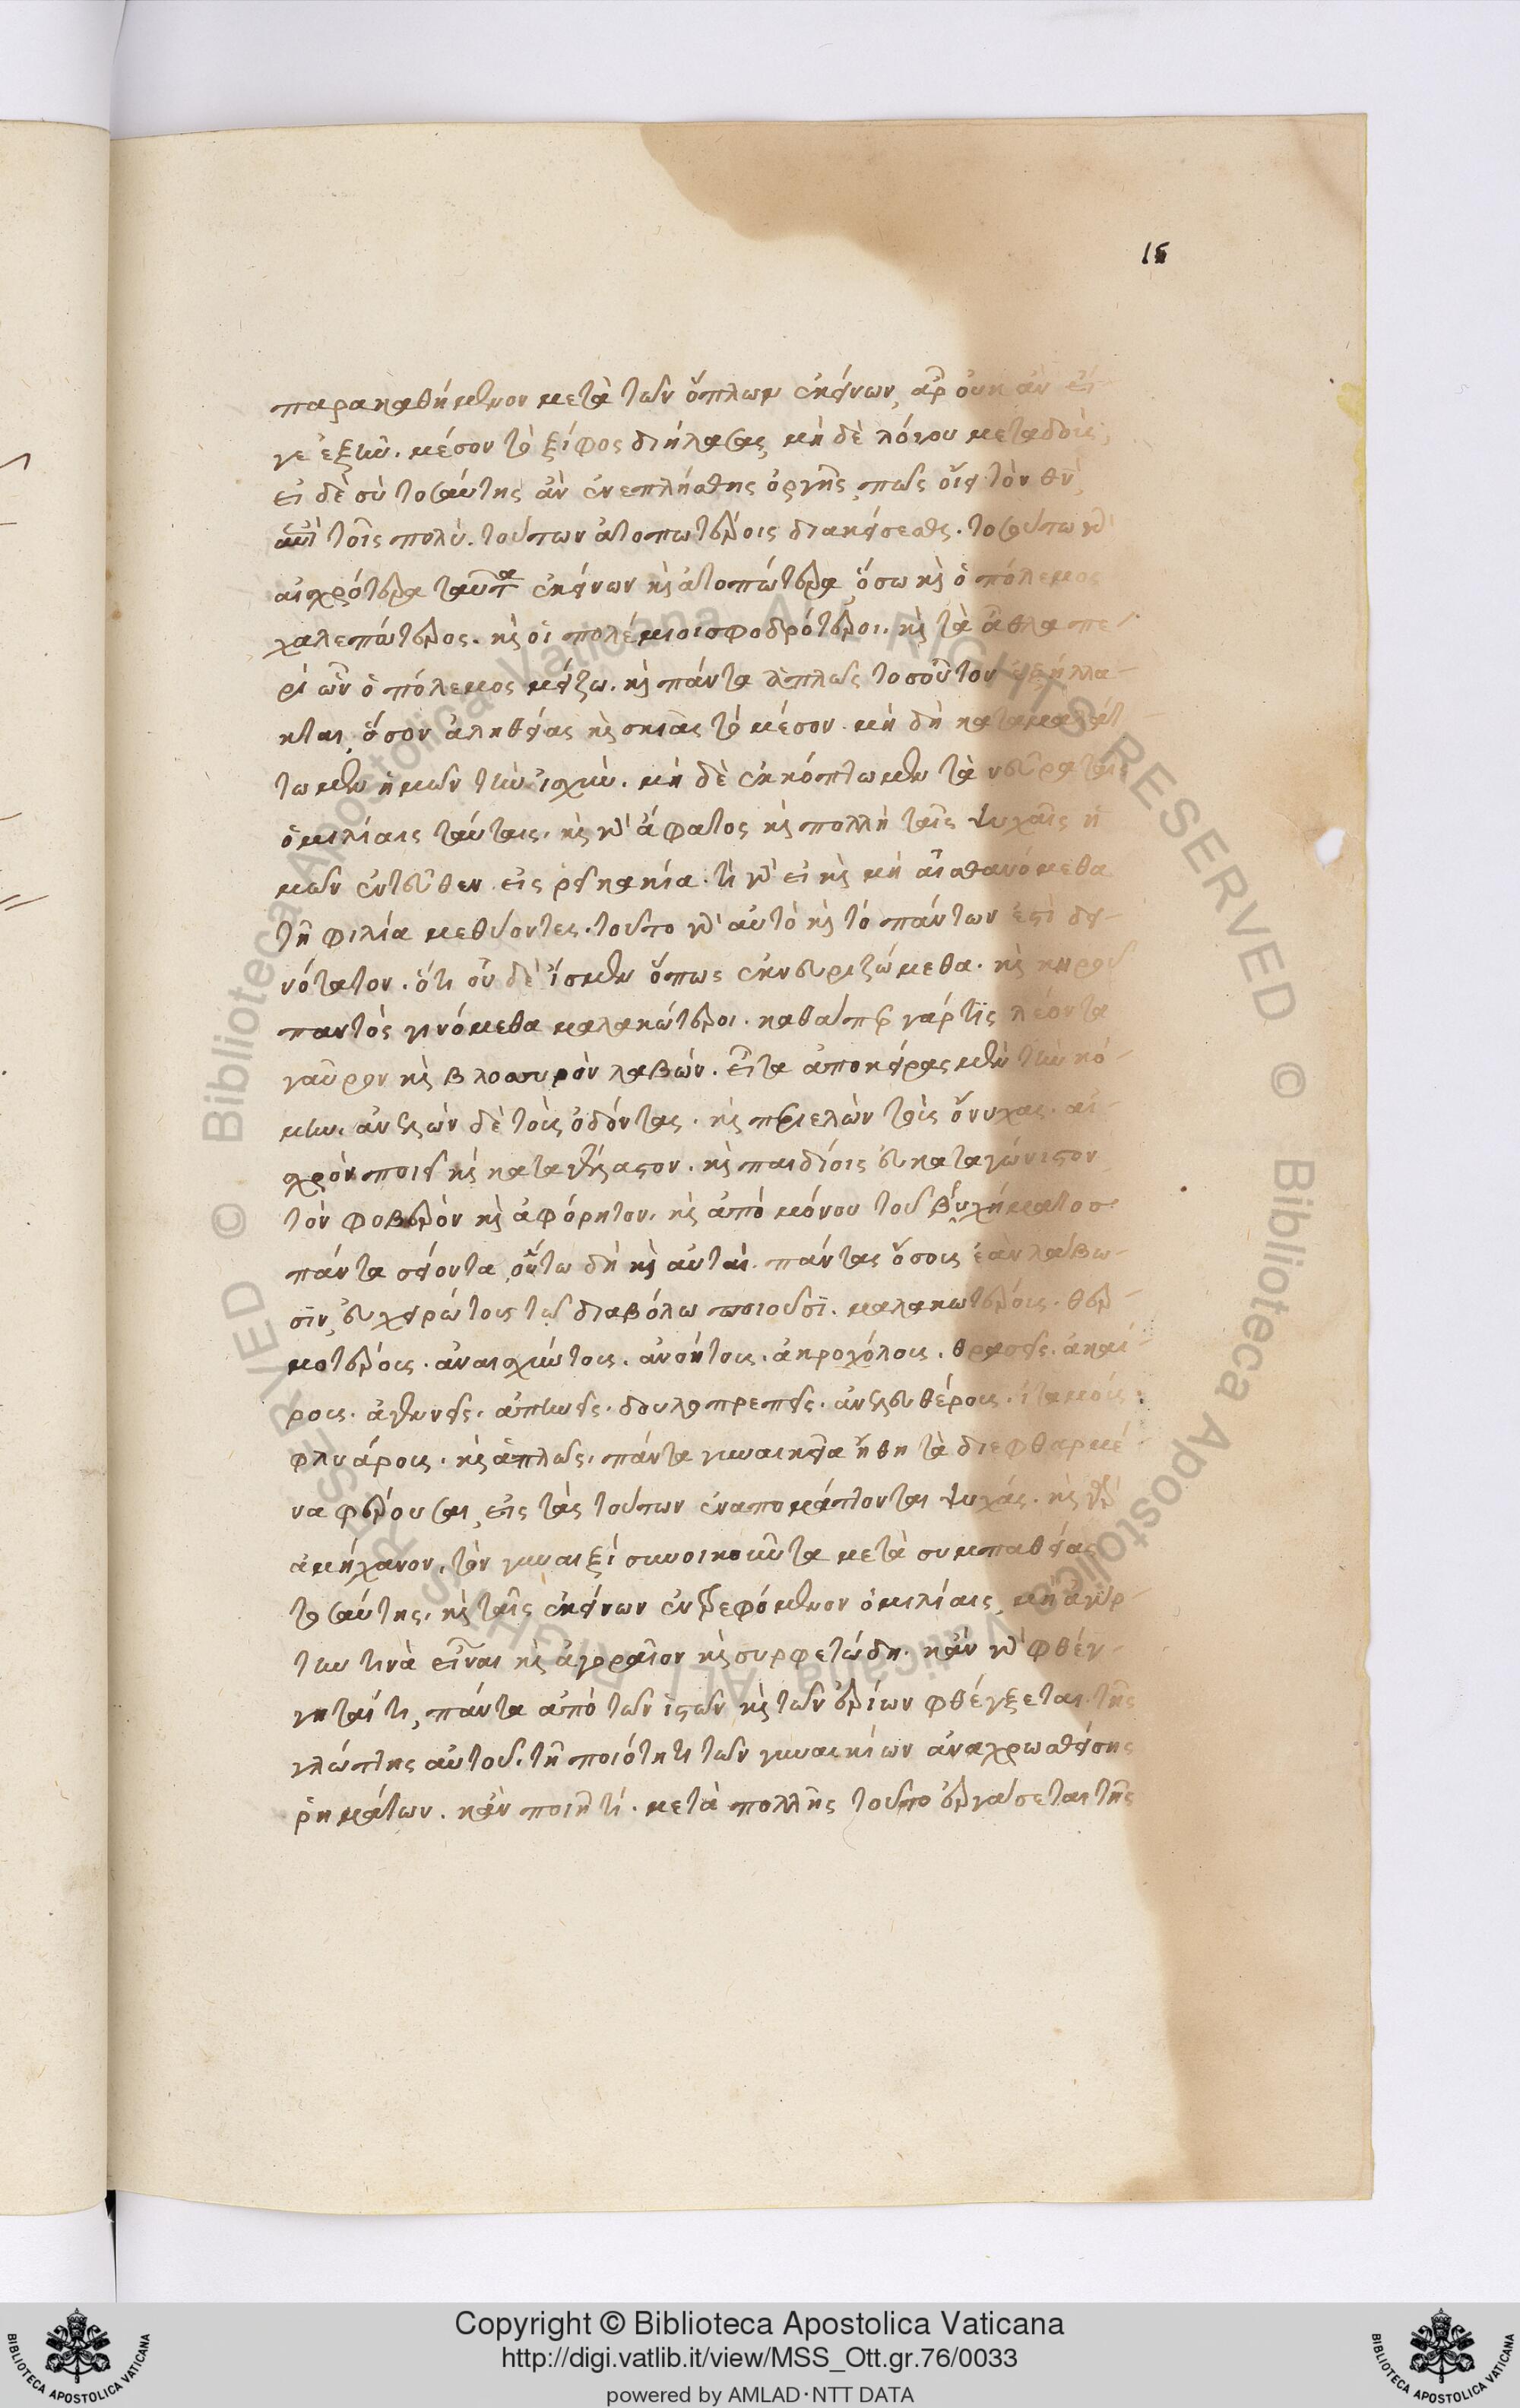 15
παρακαθήμενον μετὰ τῶν ὅπλων ἐκείνων, ἆρ οὐκ ἂν εἴ
γε ἐξῆν. μέσον τὸ ξίφος διήλασας, μὴ δὲ λόγου μεταδούς,
εἰ δὲ σὺ τοσαύτης ἂν ἐνεπλήσθης ὀργῆς, πῶς οἴει τὸν θν̀,
ἐπὶ τοῖς πολὺ. τούτων ἀτοπωτέροις διακείσεσθαι. τοσούτω γὰρ
αἰσχρότερα ταῦτα ἐκείνων καὶ ἀτοπώτερα, ὅσω καὶ ὁ πόλεμος
χαλεπώτερος. καὶ οἱ πολέμιοι σφοδρότεροι. καὶ τὰ ἆθλα πε
ρὶ ὧν ὁ πόλεμος μείζω. καὶ πάντα ἁπλῶς τοσοῦτον ἐξήλλα
κται, ὅσον ἀληθείας καὶ σκιᾶς τὸ μέσον. μὴ δὴ καταμαλάτ
τωμεν ἡμῶν τὴν ἰσχὺν. μὴ δὲ ἐκκόπτωμεν τὰ νεῦρα ταῖς
ὁμιλίαις ταύταις. καὶ γὰρ ἄφατος καὶ πολλὴ ταῖς ψυχαῖς ἡ
μῶν ἐντεῦθεν εἰσρεῖ κακία. τί γὰρ εἰ καὶ μὴ αἰσθανόμεθα
τῆ φιλία μεθύοντες. τοῦτο γὰρ αὐτὸ καὶ τὸ πάντων ἐστὶ δει
νότατον. ὅτι οὐ δὲ ἴσμεν ὅπως ἐκνευριζώμεθα. καὶ κηροῦ
παντὸς γινόμεθα μαλακώτεροι. καθάπερ γάρ τῒς λέοντα
γαῦρον καὶ βλοσυρὸν λαβών. εἶτα ἀποκείρας μὲν τὴν κό
μην. ἀνελὼν δὲ τοὺς ὀδόντας. καὶ περιελὼν τοὺς ὄνυχας. αἰ
σχρὸν ποιεῖ καὶ καταγέλαστον. καὶ παιδίοις εὐκαταγώνιστον
τὸν φοβερὸν καὶ ἀφόρητον. καὶ ἀπὸ μόνου τοῦ βρυχήματος
πάντα σείοντα, οὕτω δὴ καὶ αὗται. πάντας ὅσους ἐὰν λάβω
σῒν, εὐχειρώτους τῶ διαβόλω ποιοῦσῒ. μαλακωτέρους. θερ
μοτέρους. ἀναισχύντους. ἀνοήτους. ἀκροχόλους. θρασεῖς. ἀκαί
ρους. ἀγεννεῖς. ἀπηνεῖς. δουλοπρεπεῖς. ἀνελευθέρους. ἰταμούς.
φλυάρους. καὶ ἁπλῶς. πάντα γυναικεῖα ἤθη τὰ διεφθαρμέ
να φέρουσαι, εἰς τὰς τούτων ἐναπομάττονται ψυχάς. καὶ γὰρ
ἀμήχανον. τὸν γυναιξί συνοικοῦντα μετὰ συμπαθείας
τοσαύτης. καὶ ταῖς ἐκείνων ἐντρεφόμενον ὁμιλίαις, μὴ ἀγύρ
την τινὰ εἶναι καὶ ἀγοραῖον καὶ συρφετώδη. κἂν γὰρ φθέγ
γηταί τι, πάντα ἀπὸ τῶν ἱστῶν καὶ τῶν ἐρίων φθέγξεται. τῆς
γλώττης αὐτοῦ. τῆ ποιότητι τῶν γυναικίων ἀναχρωσθείσης
ῥημάτων. κἂν ποιῆ τί. μετὰ πολλῆς τοῦτο ἐργάσεται τῆς
Copyright © Biblioteca Apostolica Vaticana
http://digi.vatlib.it/view/MSS_Ott.gr.76/0033
powered by AMLAD·NTT DATA